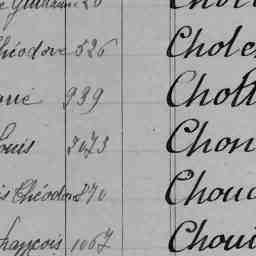 Guillaume 20
Théodore 526 Chole
939 Chott
Louis 3073 Chon
Théodore 870 Chou
François 1067 Choui